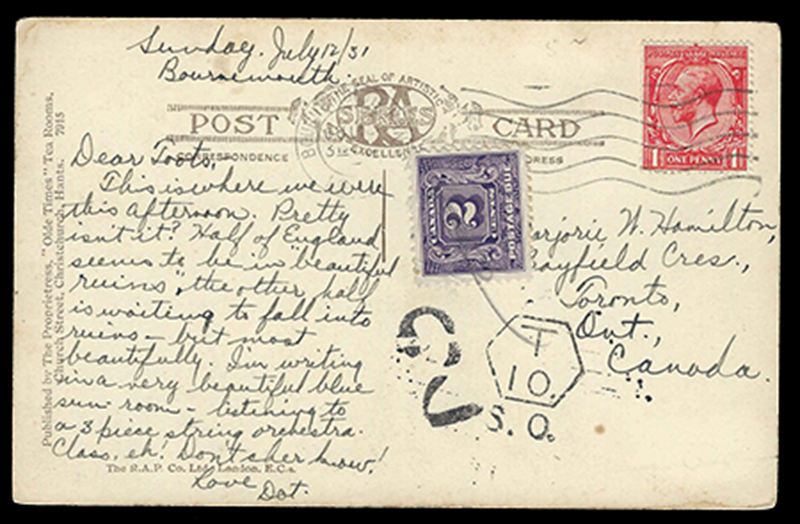 Sunday. July 12/31
Bournemouth.
POST CARD
THE SEAL OF ARTISTIC
EXCELLENCE
RA
SERIES
CORRESPONDENCE
ONE PENNY
Dear Toots,
This is where we were
this afternoon. Pretty
isn't it? Half of England
seems to be in "beautiful
ruins", the other half
is waiting to fall into
ruins - but most
beautifully. I'm writing
in a very beautiful blue
sun-room - listening to
a 3 piece string orchestra.
Class, eh. Don't cher know!
Love
Dot.
CANADA
2
CENTS
POSTAGE DUE
Marjorie W. Hamilton,
Bayfield Cres.,
Toronto,
Ont.,
Canada.
2
T
10.
S.O.
Published by The Proprietress, "Olde Times" Tea Rooms,
Church Street, Christchurch, Hants. 7915
The R.A.P. Co. Ltd. London. E.C.4.